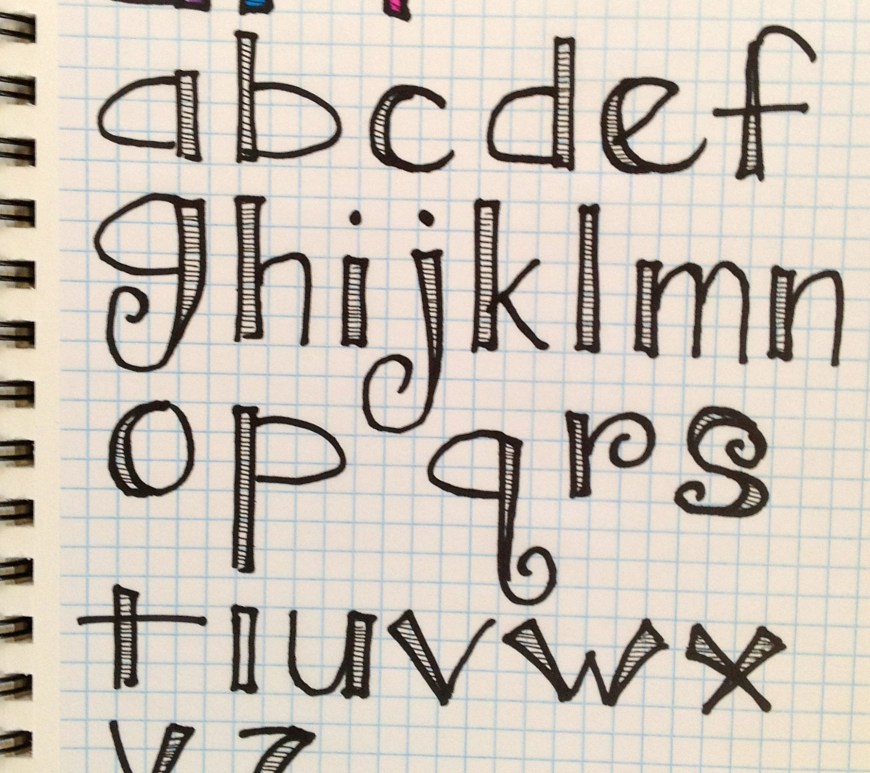 abcdef
ghijklmn
opqrs
tıuvwx
yz